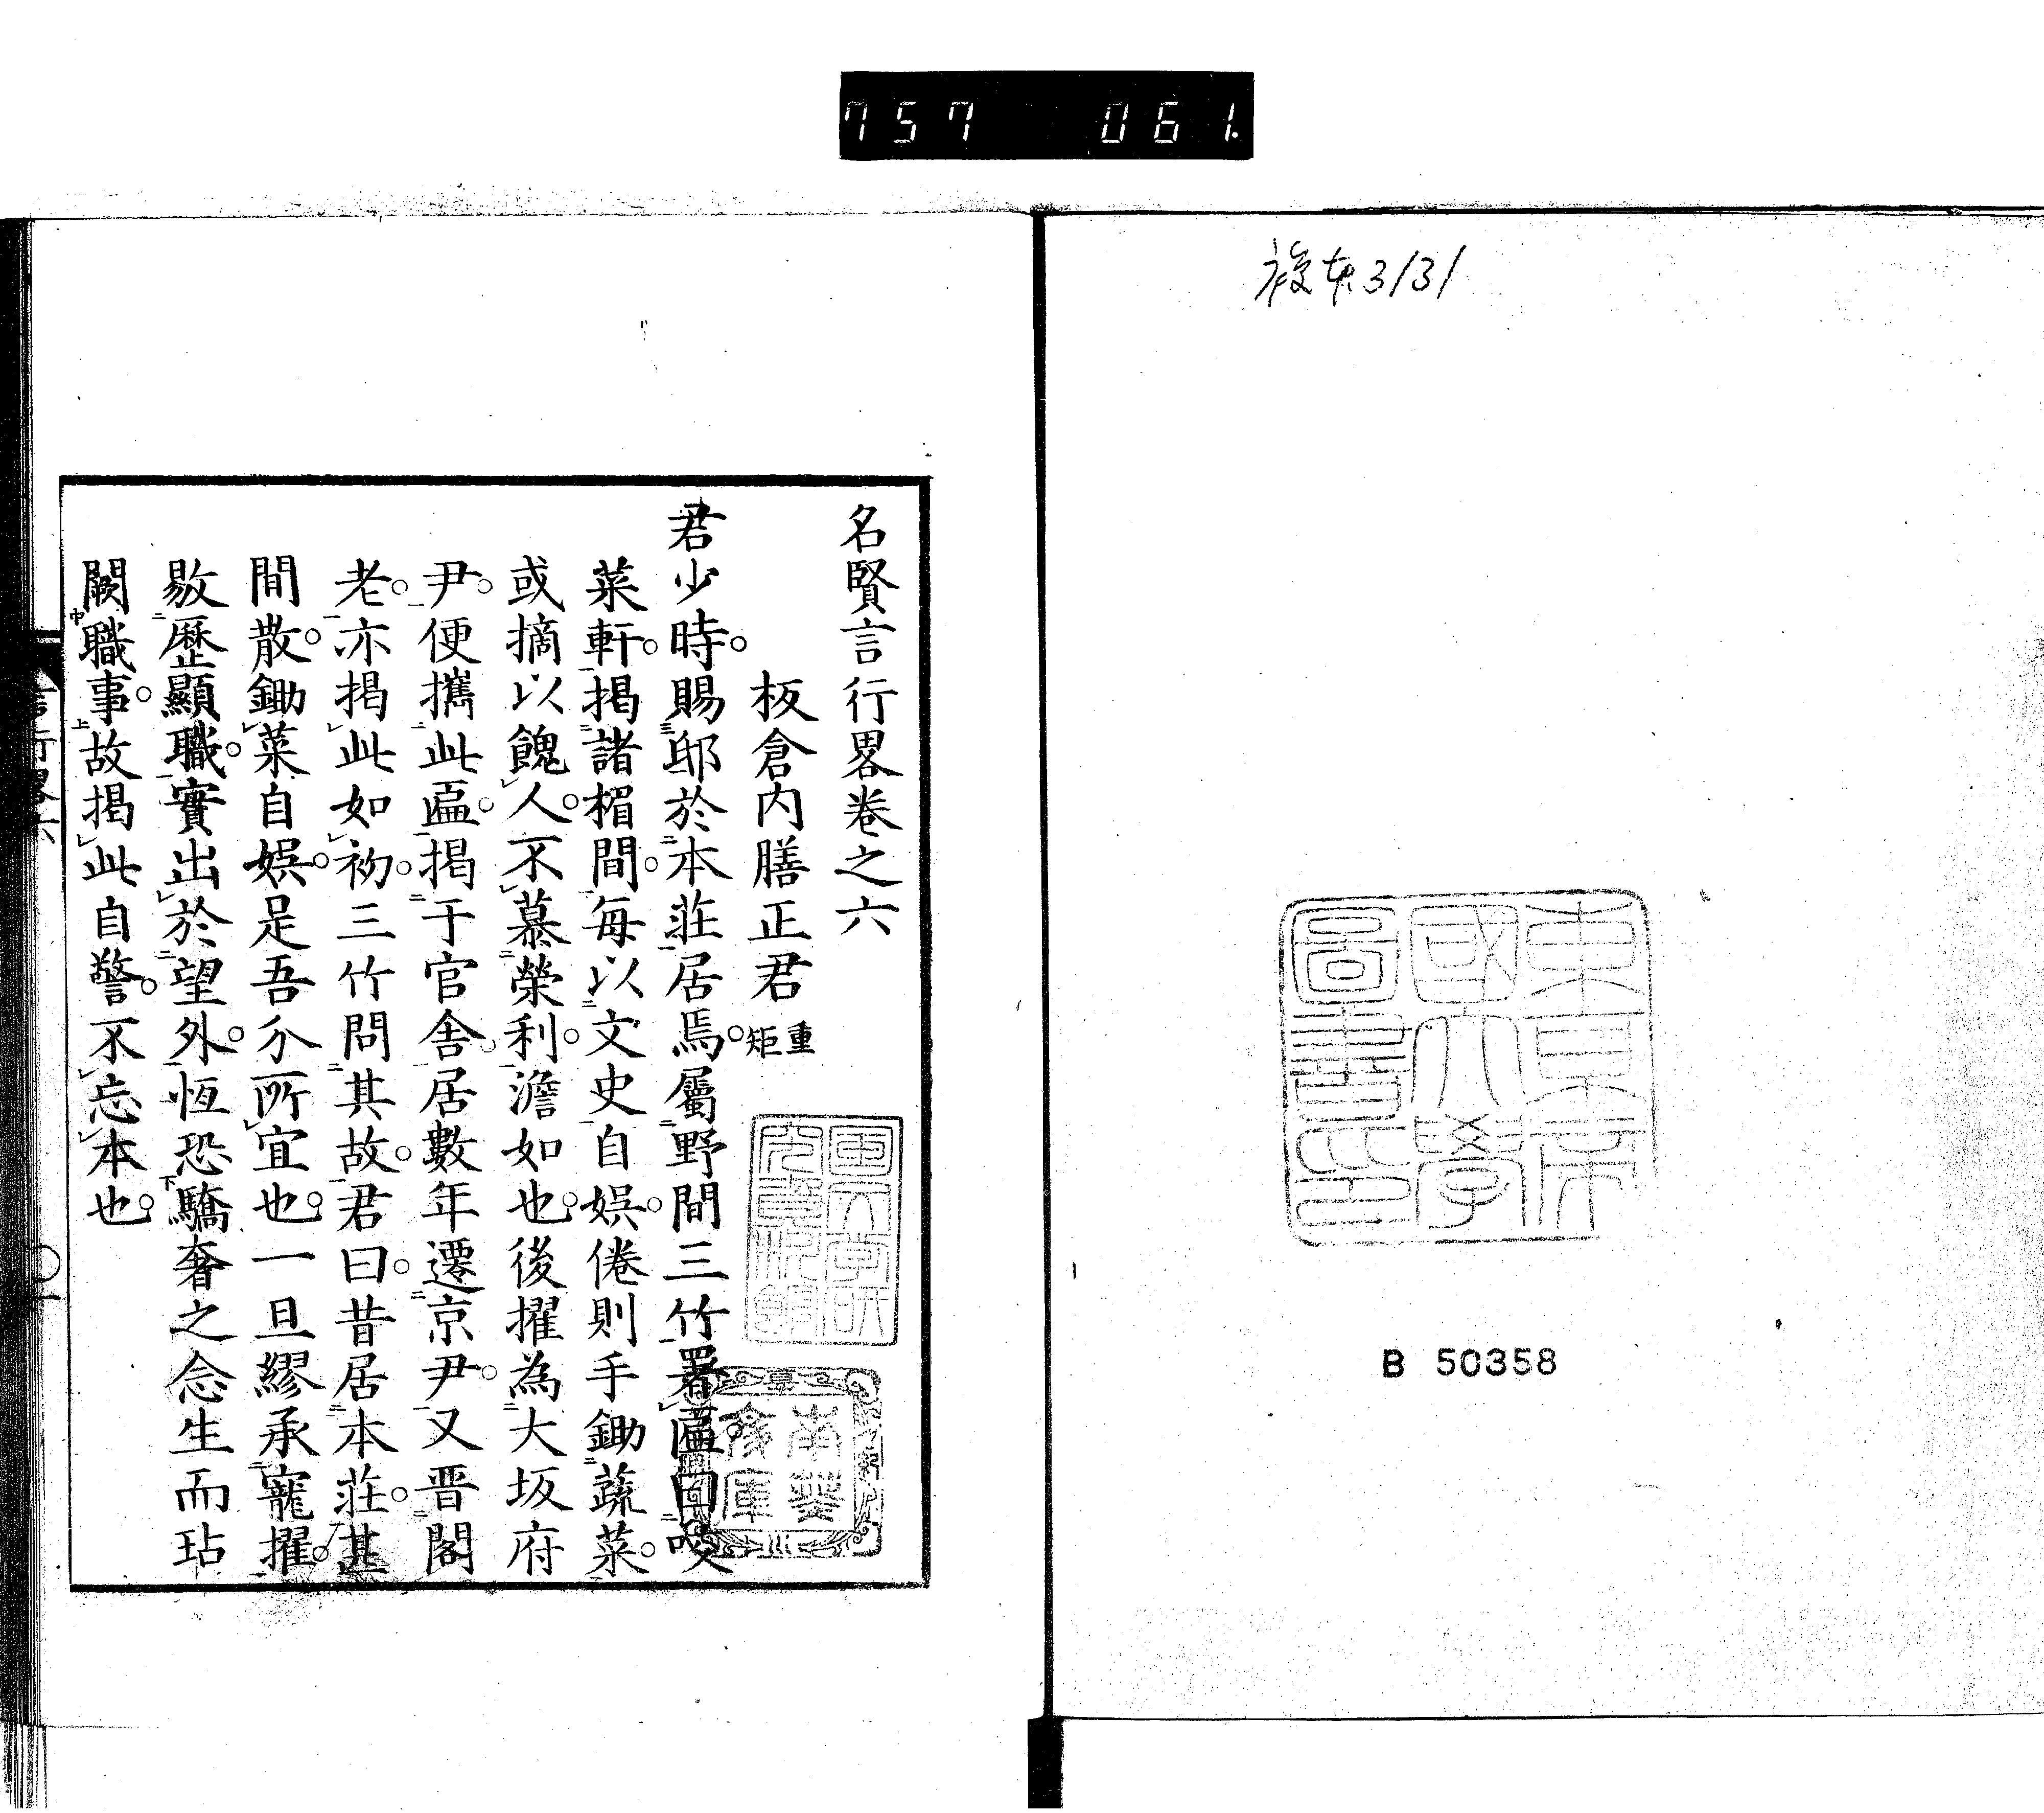 757 061.
複本3131
東京帝
國大學
圖書印
B 50358
名賢言行畧卷之六
板倉内膳正君重矩
君少時。賜邸於本莊居焉。屬野間三竹署匾曰咬
菜軒。揭諸楣間。每以文史自娯。倦則手鋤蔬菜。
或摘以餽人。不慕榮利。澹如也。後擢為大坂府
尹。便攜此匾。揭于官舎。居數年遷京尹。又晋閣
老。亦揭此如初。三竹問其故。君曰。昔居本莊。甚
間散。鋤菜自娯。足吾分所宜也。一旦繆承寵擢。
敭歷顯職。實出於望外。恆恐驕奢之念生而玷
闕職事。故揭此自警。不忘本也。
南葵
文庫
言行畧六
〇一